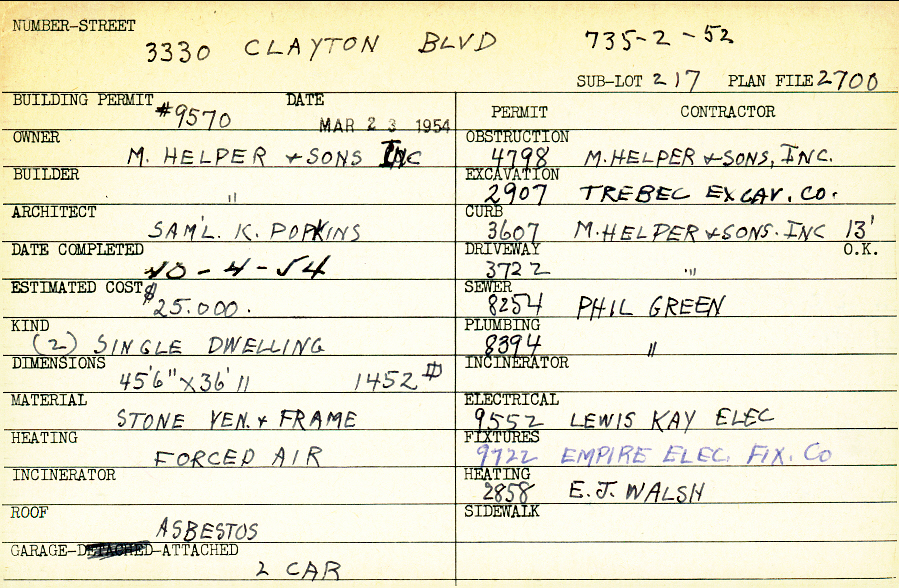 NUMBER-STREET
3330 CLAYTON BLVD 735-2-52
SUB-LOT 217 PLAN FILE 2700
BUILDING PERMIT #9570 DATE MAR 23 1954
PERMIT CONTRACTOR
OWNER M. HELPER & SONS INC
OBSTRUCTION 4798 M. HELPER & SONS, INC.
BUILDER "
EXCAVATION 2907 TREBEC EXCAV. CO.
ARCHITECT SAM'L. K. POPKINS
CURB 3607 M. HELPER & SONS. INC 13' O.K.
DATE COMPLETED 10-4-54
DRIVEWAY 3722 "
ESTIMATED COST $25.000.
SEWER 8254 PHIL GREEN
KIND (2) SINGLE DWELLING
PLUMBING 8394 "
DIMENSIONS 45'6" X 36' 11 1452 #
INCINERATOR
MATERIAL STONE VEN. & FRAME
ELECTRICAL 9552 LEWIS KAY ELEC
HEATING FORCED AIR
FIXTURES 9722 EMPIRE ELEC. FIX. CO
INCINERATOR
HEATING 2858 E.J. WALSH
ROOF ASBESTOS
SIDEWALK
GARAGE-DETACHED-ATTACHED
2 CAR